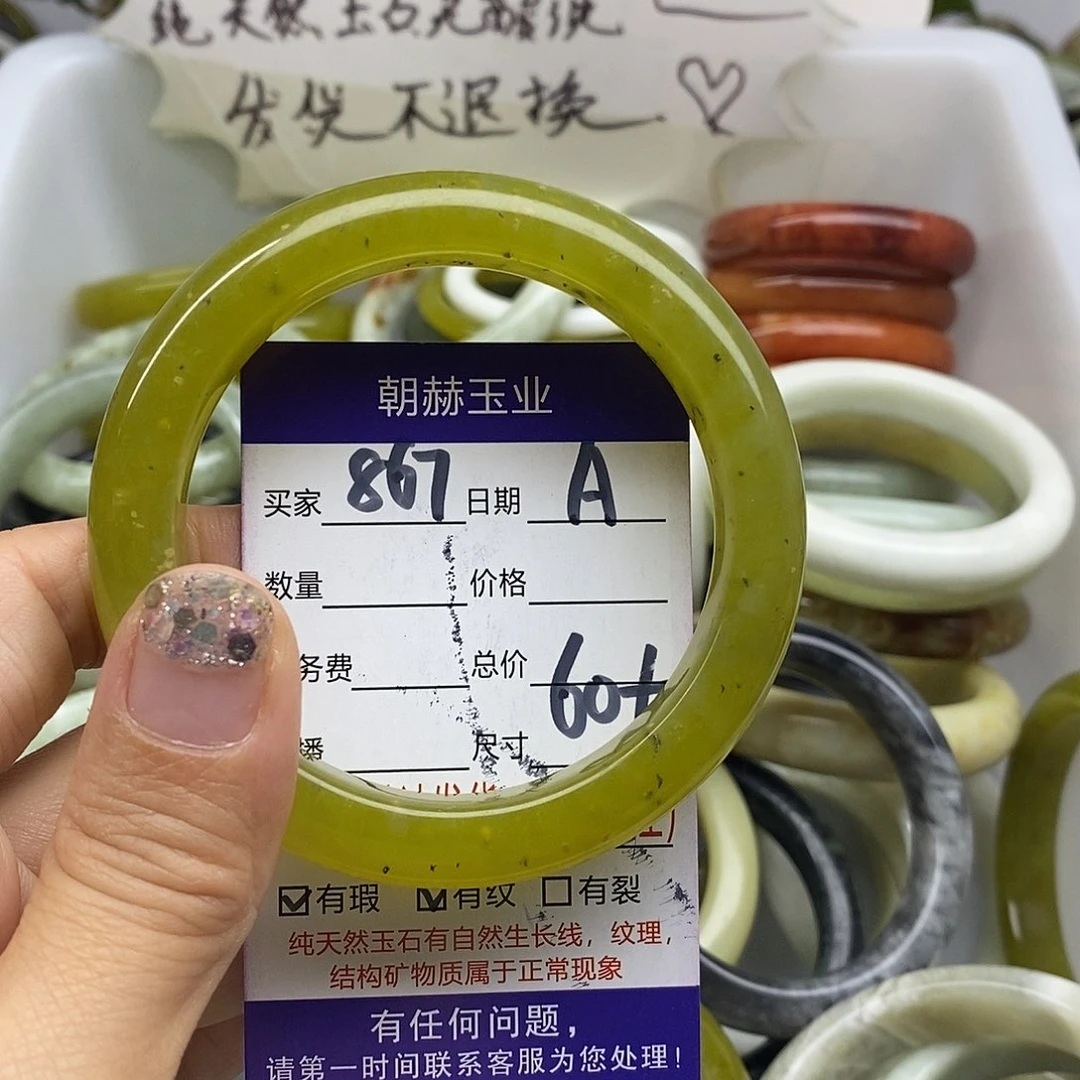 纯天然玉石无酸洗
发货不退换
朝赫玉业
买家 867 日期 A
数量 价格
务费 总价
播 尺寸 60+
☑有瑕 ☑有纹 □有裂
纯天然玉石有自然生长线，纹理，
结构矿物质属于正常现象
有任何问题，
请第一时间联系客服为您处理！